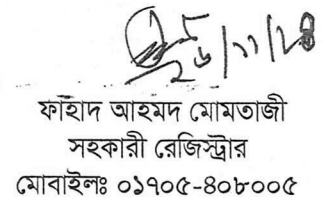 ২৬/১১/২৪
ফাহাদ আহমদ মোমতাজী
সহকারী রেজিস্ট্রার
মোবাইলঃ ০১৭০৫-৪০৮০০৫